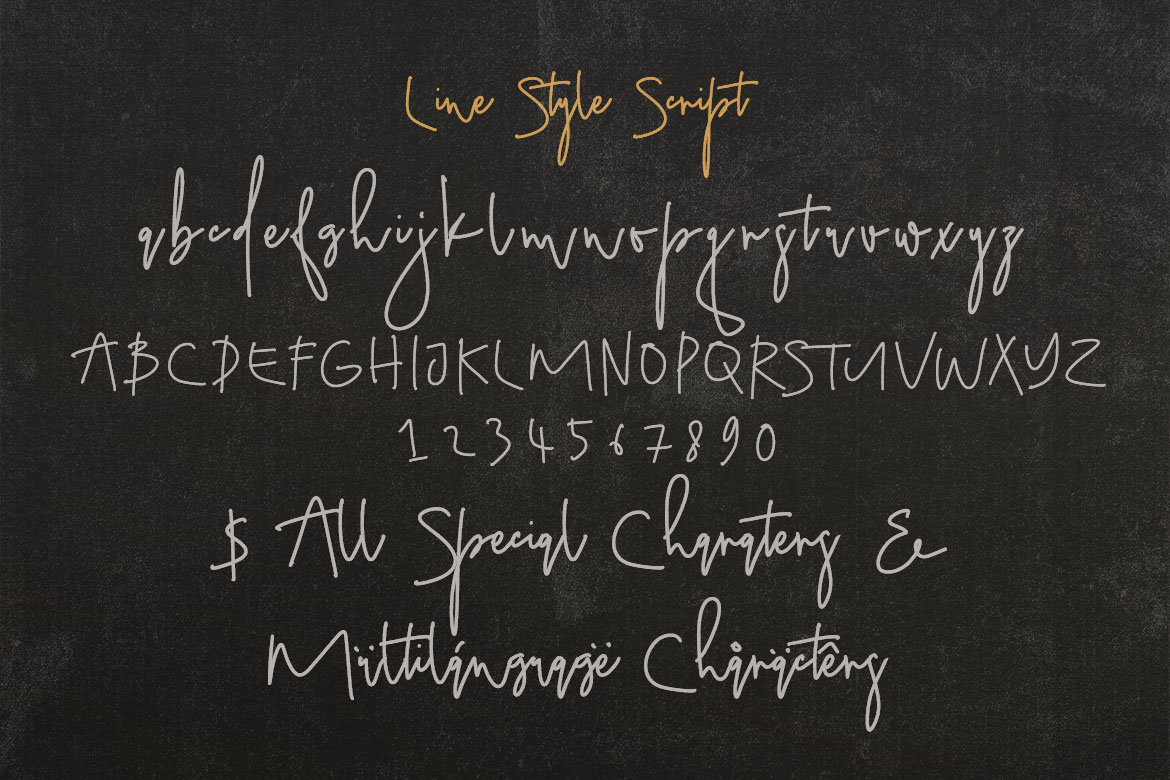 Line Style Script
abcdefghijklmnopqrstuvowxyz
ABCDEFGHIJKLMNOPQRSTUVWXYZ
1234567890
$ All Special Charaters &
Müttilánguagë Chåräctêrs